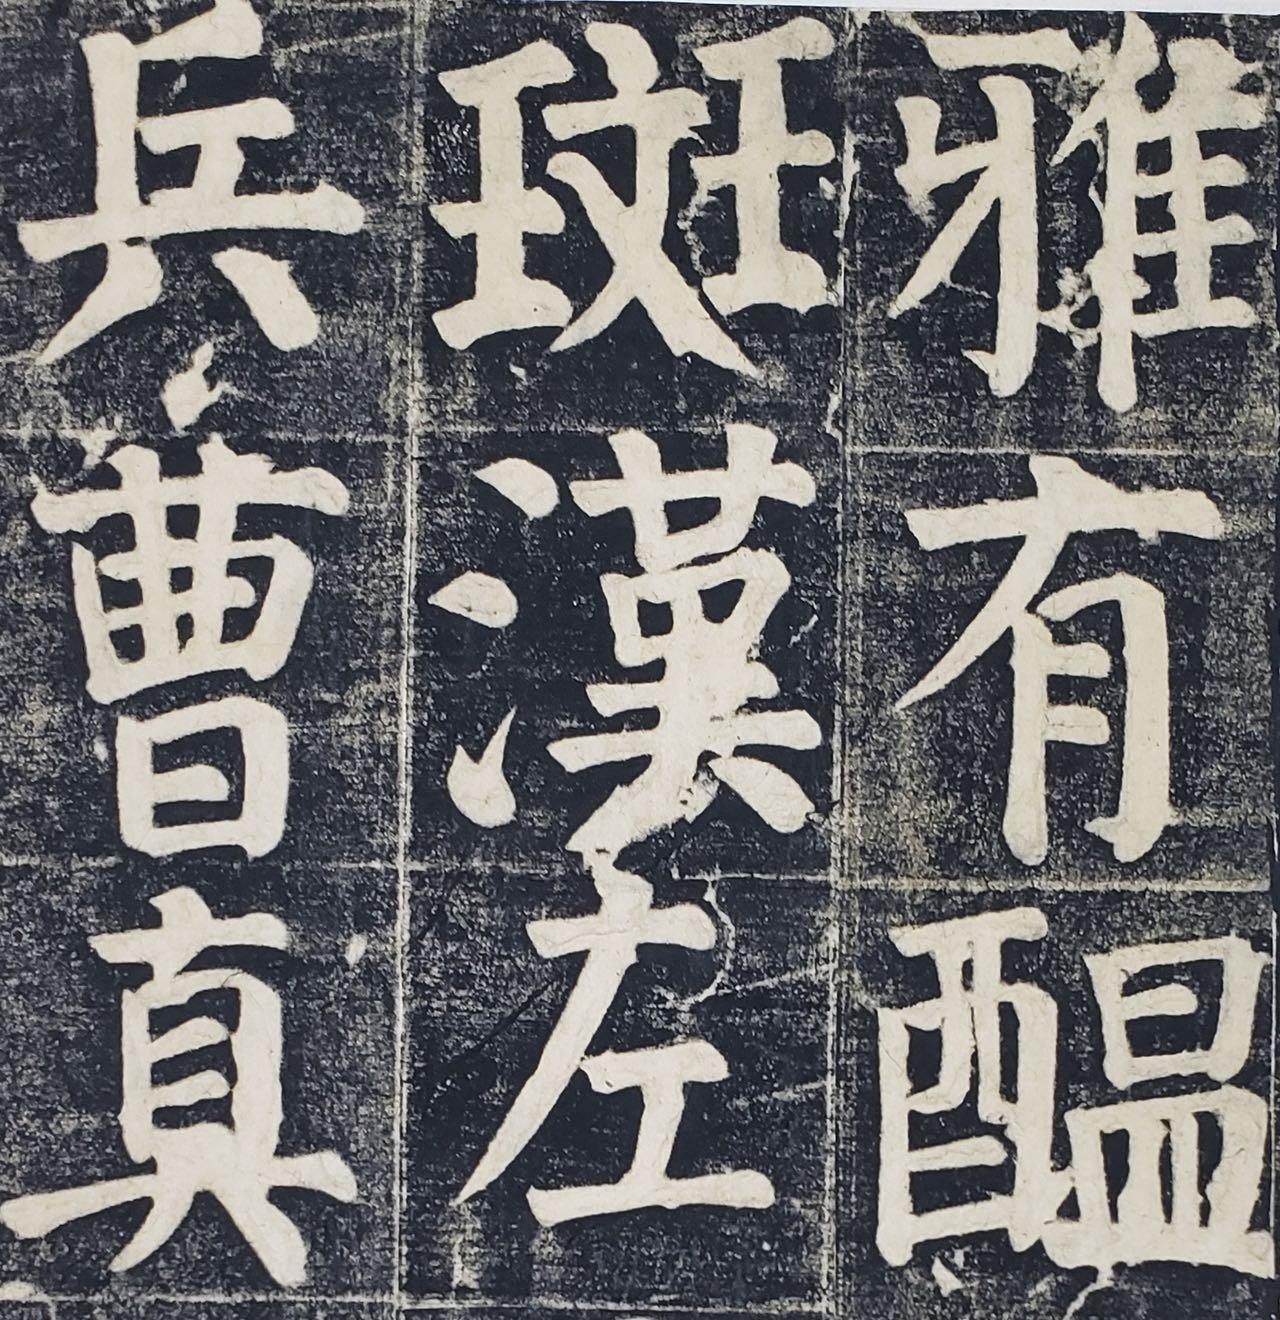 雅有醖
斑漢左
兵曹真